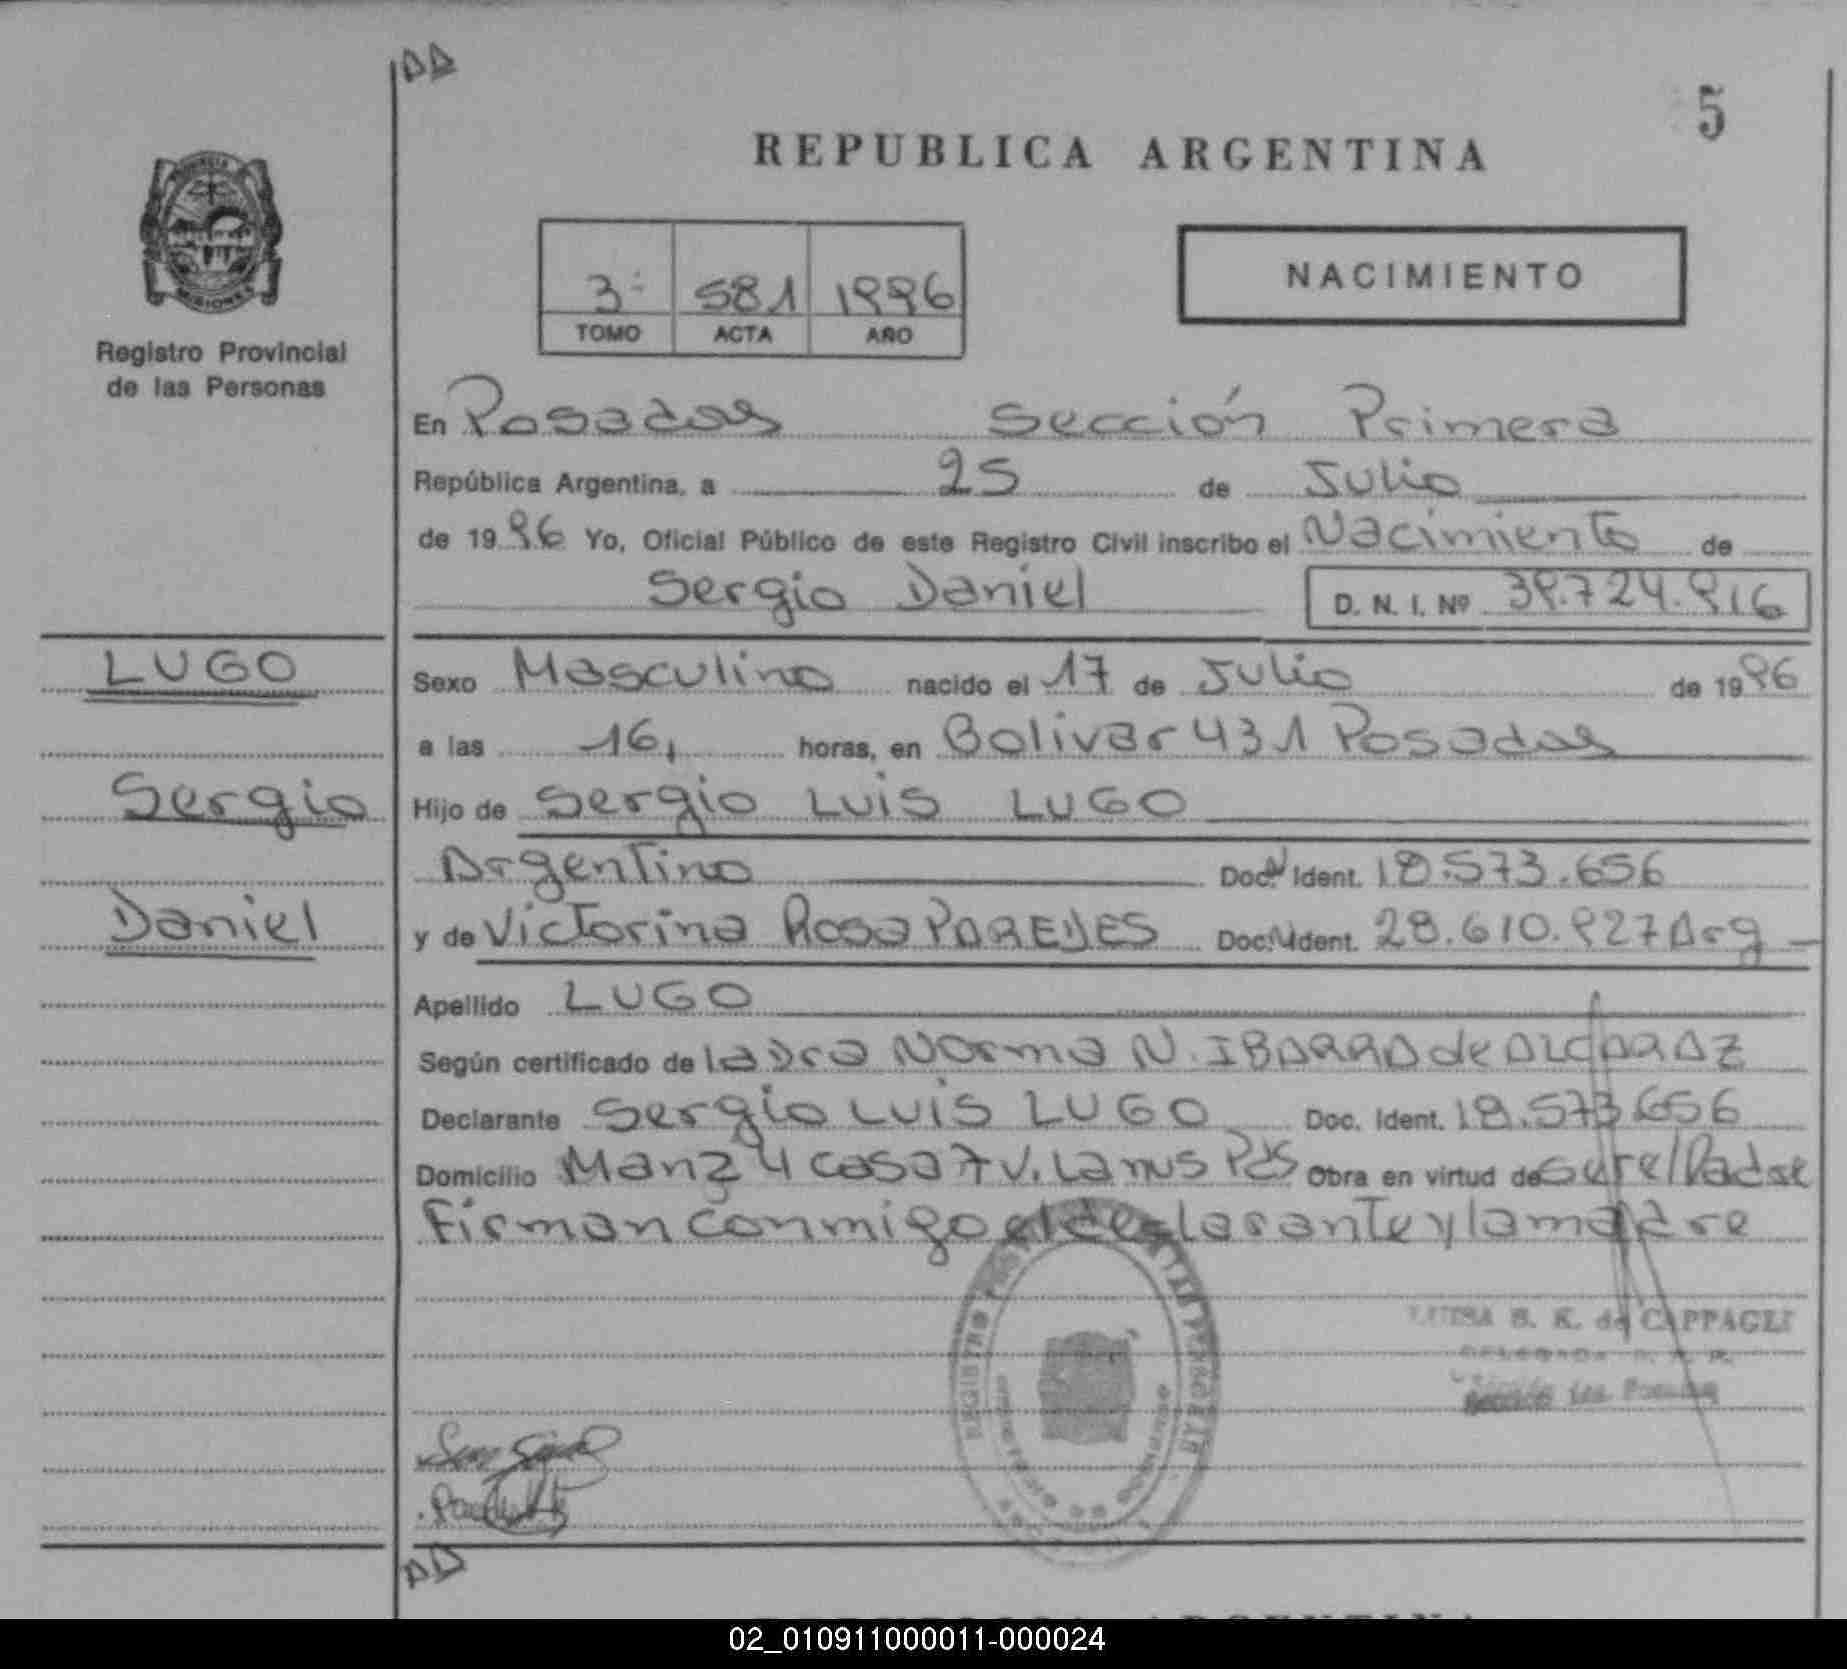 5
REPUBLICA ARGENTINA
MISIONES
Registro Provincial
de las Personas
3º 581 1996
TOMO ACTA AÑO
NACIMIENTO
En Posadas Sección Primera
República Argentina, a 25 de Julio
de 1996 Yo, Oficial Público de este Registro Civil inscribo el Nacimiento de
Sergio Daniel D. N. I. Nº 39.724.916
LUGO
Sexo Masculino nacido el 17 de Julio de 1996
a las 16, horas, en Bolivar 431 Posadas
Sergio
Hijo de Sergio Luis LUGO
Argentino Doc. N Ident. 18.573.656
Daniel
y de Victorina Rosa PAREDES Doc. N Ident. 28.610.927 Arg
Apellido LUGO
Según certificado de la Dra Norma N. IBARRA de ALCARAZ
Declarante Sergio Luis LUGO Doc. Ident. 18.573.656
Domicilio Manz 4 casa 7 V. Lanus Pdas Obra en virtud de ser el Padre
Firman conmigo el declarante y la madre
B. K. de CAPPAGLI
02_010911000011-000024